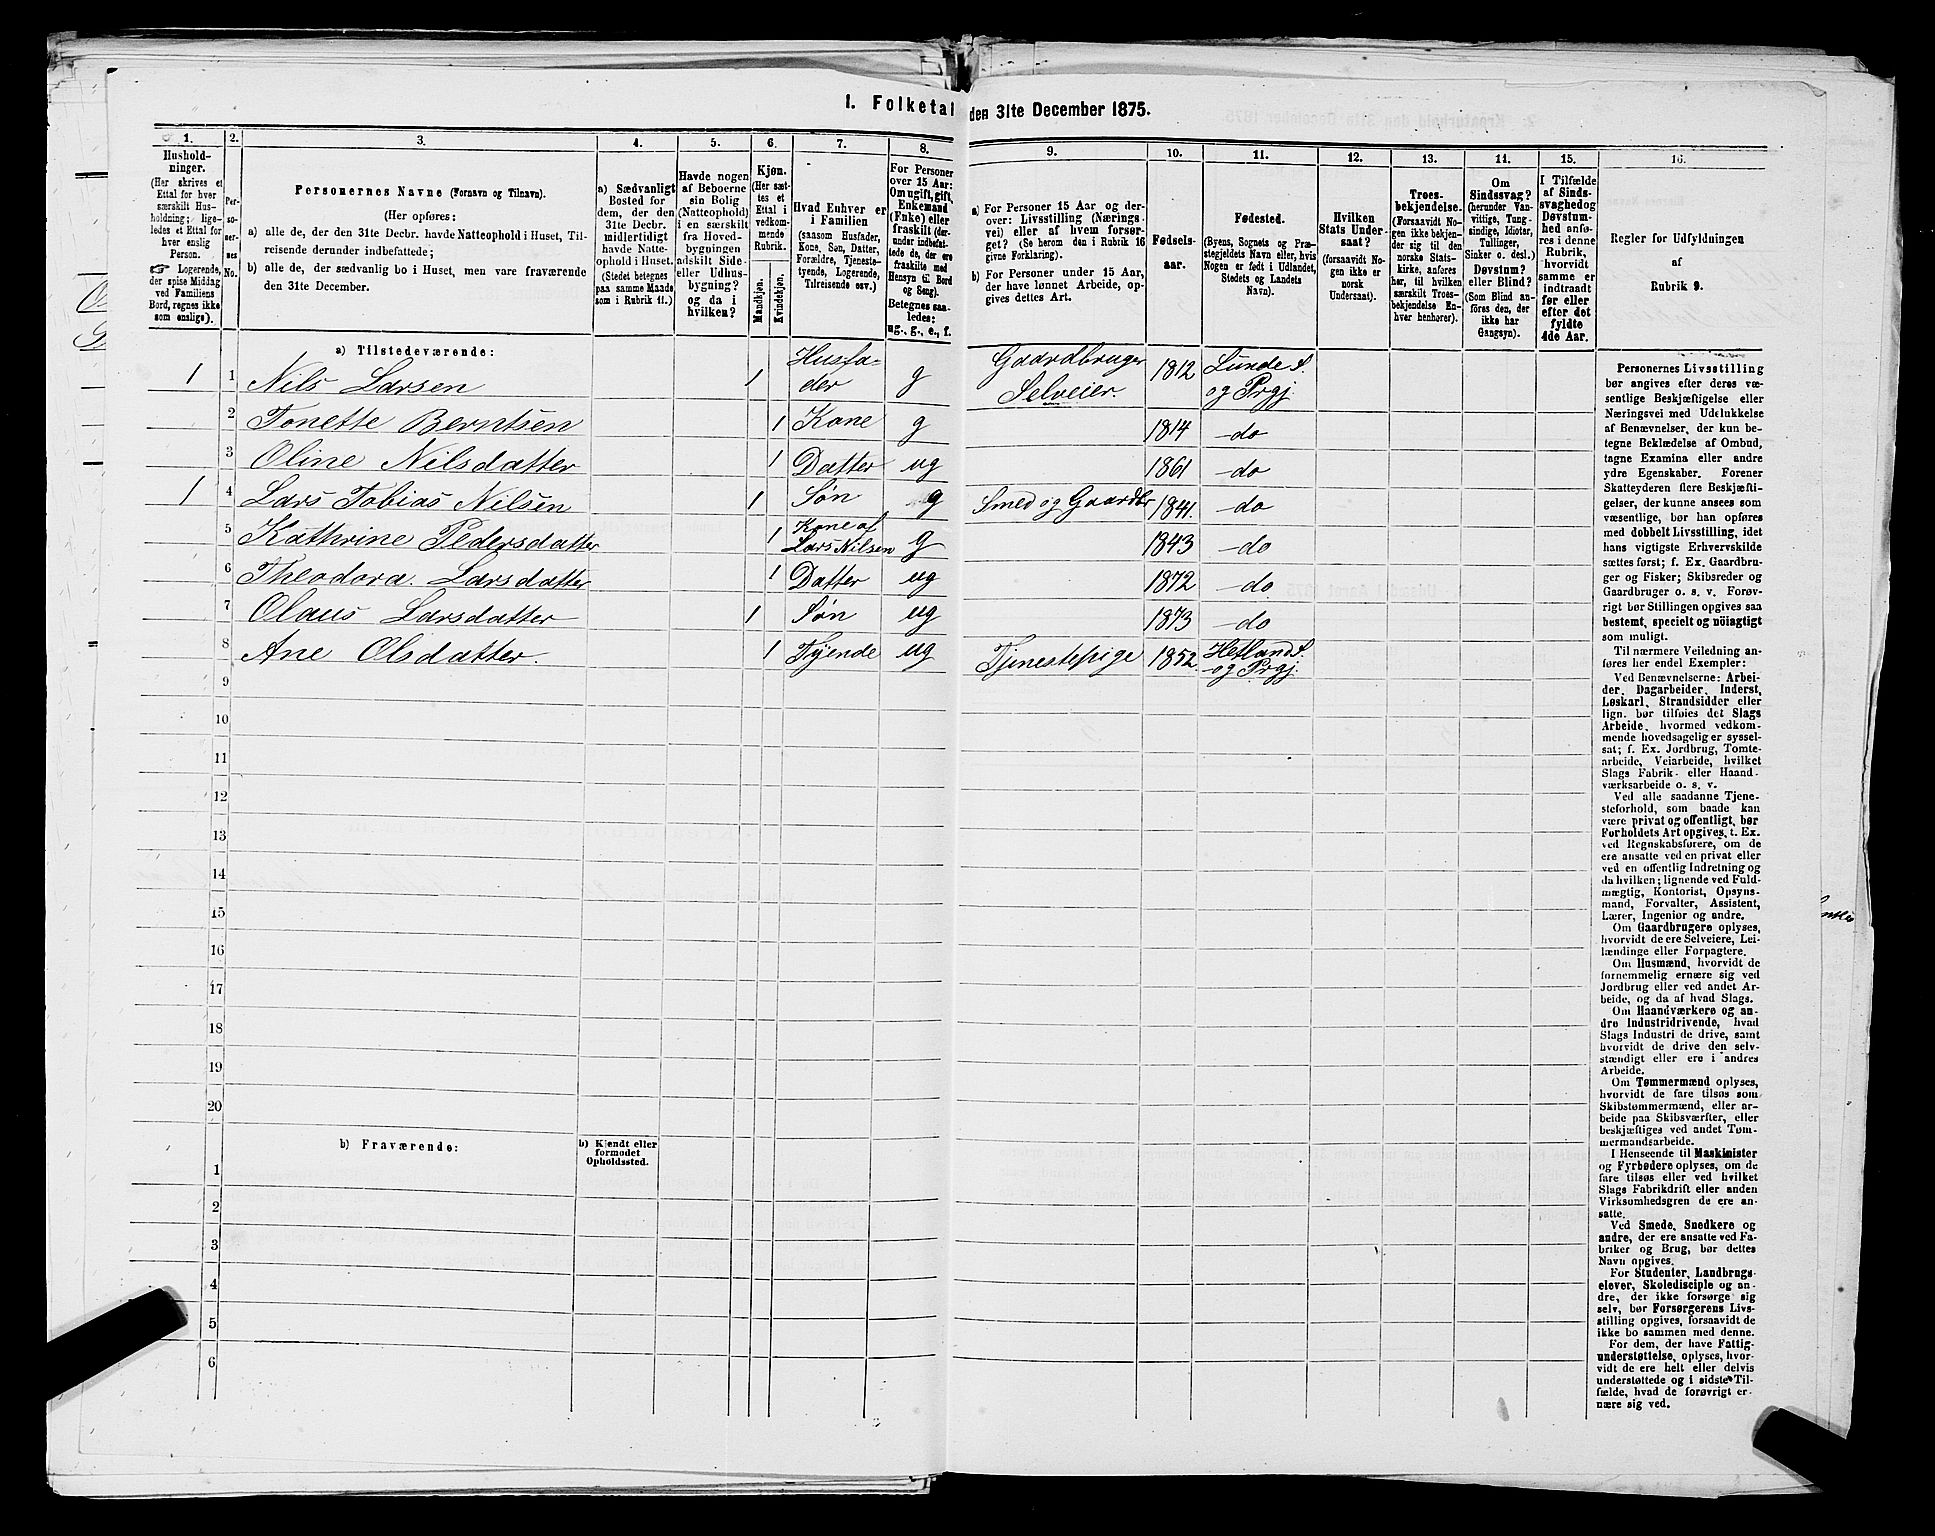 1. Folketal den 31te December 1875.
1. 2. 3. 4. 5. 6. 7. 8. 9. 10. 11. 12. 13. 14. 15. 16.
Hushold-
ninger.
(Her skrives et
Ettal for hver
særskilt Hus-
holdning; lige-
ledes et Ettal for
hver enslig
Person.
☞ Logerende,
der spise Middag
ved Familiens
Bord, regnes ikke
som enslige).
Per-
so-
ner-
nes
No.
Personernes Navne (Fornavn og Tilnavn).
(Her opføres:
a) alle de, der den 31te Decbr. havde Natteophold i Huset, Til-
reisende derunder indbefattede;
b) alle de, der sædvanlig bo i Huset, men vare fraværende
den 31te December.
a) Sædvanligt
Bosted for
dem, der den
31te Decbr.
midlertidigt
havde Natte-
ophold i Huset.
(Stedet betegnes
paa samme Maade
som i Rubrik 11.)
Havde nogen
af Beboerne
sin Bolig
(Natteophold)
i en særskilt
fra Hoved-
bygningen
adskilt Side-
eller Udhus-
bygning?
og da i
hvilken?
Kjøn.
(Her sæt-
tes et
Ettal i
vedkom-
mende
Rubrik.
Mandkjøn.
Kvindekjøn.
Hvad Enhver er
i Familien
(saasom Husfader,
Kone, Søn, Datter,
Forældre, Tjeneste-
tyende, Logerende,
Tilreisende osv.)
For Personer
over 15 Aar:
Om ugift, gift,
Enkemand
(Enke) eller
fraskilt (der-
under indbefat-
tede de, der ere
fraskilte med
Hensyn til Bord
og Seng).
Betegnes saa-
ledes:
ug., g., e., f.
a) For Personer 15 Aar og der-
over: Livsstilling (Nærings-
vei) eller af hvem forsør-
get? (Se herom den i Rubrik 16
givne Forklaring).
b) For Personer under 15 Aar,
der have lønnet Arbeide, op-
gives dettes Art.
Fødsels-
aar.
Fødested.
(Byens, Sognets og Præ-
stegjeldets Navn eller, hvis
Nogen er født i Udlandet,
Stedets og Landets
Navn).
Hvilken
Stats Under-
saat?
(forsaavidt No-
gen ikke er
norsk
Undersaat).
Troes-
bekjendelse.
(Forsaavidt No-
gen ikke bekjen-
der sig til den
norske Stats-
kirke, anføres
her, til hvilken
særskilt Troes-
bekjendelse En-
hver henhører).
Om
Sindssvag?
(herunder Van-
vittige, Tung-
sindige, Idioter,
Tullinger,
Sinker o. desl.)
Døvstum?
eller Blind?
(Som Blind an-
føres den, der
ikke har
Gangsyn).
I Tilfælde
af Sinds-
svaghed og
Døvstum-
hed anfø-
res i denne
Rubrik,
hvorvidt
samme er
indtraadt
før eller
efter det
fyldte
4de Aar.
Regler for Udfyldningen
af
Rubrik 9.
a) Tilstedeværende:
1 1 Nils Larsen 1 Husfa-
der g Gaardbruger
Selveier. 1812 Lunde S.
og Prgj.
2 Tonette Berntsen 1 Kone g 1814 -do
3 Oline Nilsdatter 1 Datter ug 1861 -do
1 4 Lars Tobias Nilsen 1 Søn g Smed og Gaardbr 1841. -do
5 Kathrine Pedersdatter 1 Kone af
Lars Nilsen g 1843 -do
6 Theodora. Larsdatter 1 Datter ug 1872 -do.
7 Olaus Larsdatter 1 Søn ug 1873 -do
8 Ane Olsdatter. 1 Tyende ug Tjenestepige 1852. Hetland S.
og Prgj.
9
10
11
12
13
14
15
16
17
18
19
20
b) Fraværende:
b) Kjendt eller
formodet
Opholdssted.
1
2
3
4
5
6
Personernes Livsstilling
bør angives efter deres væ-
sentlige Beskjæftigelse eller
Næringsvei med Udelukkelse
af Benævnelser, der kun be-
tegne Beklædelse af Ombud,
tagne Examina eller andre
ydre Egenskaber. Forener
Skatteyderen flere Beskjæfti-
gelser, der kunne ansees som
væsentlige, bør han opføres
med dobbelt Livsstilling, idet
hans vigtigste Erhvervskilde
sættes først; f. Ex. Gaardbru-
ger og Fisker; Skibsreder og
Gaardbruger o. s. v. Forøv-
rigt bør Stillingen opgives saa
bestemt, specielt og nöiagtigt
som muligt.
Til nærmere Veiledning an-
føres her endel Exempler:
Ved Benævnelserne: Arbei-
der, Dagarbeider, Inderst,
Løskarl, Strandsidder eller
lign. bør tilføies det Slags
Arbeide, hvormed vedkom-
mende hovedsagelig er syssel-
sat; f. Ex. Jordbrug, Tomte-
arbeide, Veiarbeide, hvilket
Slags Fabrik- eller Haand-
værksarbeide o. s. v.
Ved alle saadanne Tjene-
steforhold, som baade kan
være privat og offentligt, bør
Forholdets Art opgives, t. Ex.
ved Regnskabsførere, om de
ere ansatte ved en privat eller
ved en offentlig Indretning og
da hvilken; lignende ved Fuld-
mægtig, Kontorist, Opsyns-
mand, Forvalter, Assistent,
Lærer, Ingeniør og andre.
Om Gaardbrugere oplyses,
hvorvidt de ere Selveiere, Lei-
lændinge eller Forpagtere.
Om Husmænd, hvorvidt de
fornemmelig ernære sig ved
Jordbrug eller ved andet Ar-
beide, og da af hvad Slags.
Om Haandværkere og an-
dre Industridrivende, hvad
Slags Industri de drive, samt
hvorvidt de drive den selv-
stændigt eller ere i andres
Arbeide.
Om Tømmermænd oplyses,
hvorvidt de fare tilsøs som
Skibstømmermænd, eller ar-
beide paa Skibsværfter, eller
beskjæftiges ved andet Tøm-
mermandsarbeide.
I Henseende til Maskinister
og Fyrbødere oplyses, om de
fare tilsøs eller ved hvilket
Slags Fabrikdrift eller anden
Virksomhedsgren de ere an-
satte.
Ved Smede, Snedkere og
andre, der ere ansatte ved Fa-
briker og Brug, bør dettes
Navn opgives.
For Studenter, Landbrugs-
elever, Skoledisciple og an-
dre, der ikke forsørge sig
selv, bør Forsørgerens Livs-
stilling opgives, forsaavidt de
ikke bo sammen med denne.
For dem, der have Fattig-
understøttelse, oplyses, hvor-
vidt de ere helt eller delvis
understøttede og i sidste Til-
fælde, hvad de forøvrigt er-
nære sig ved.